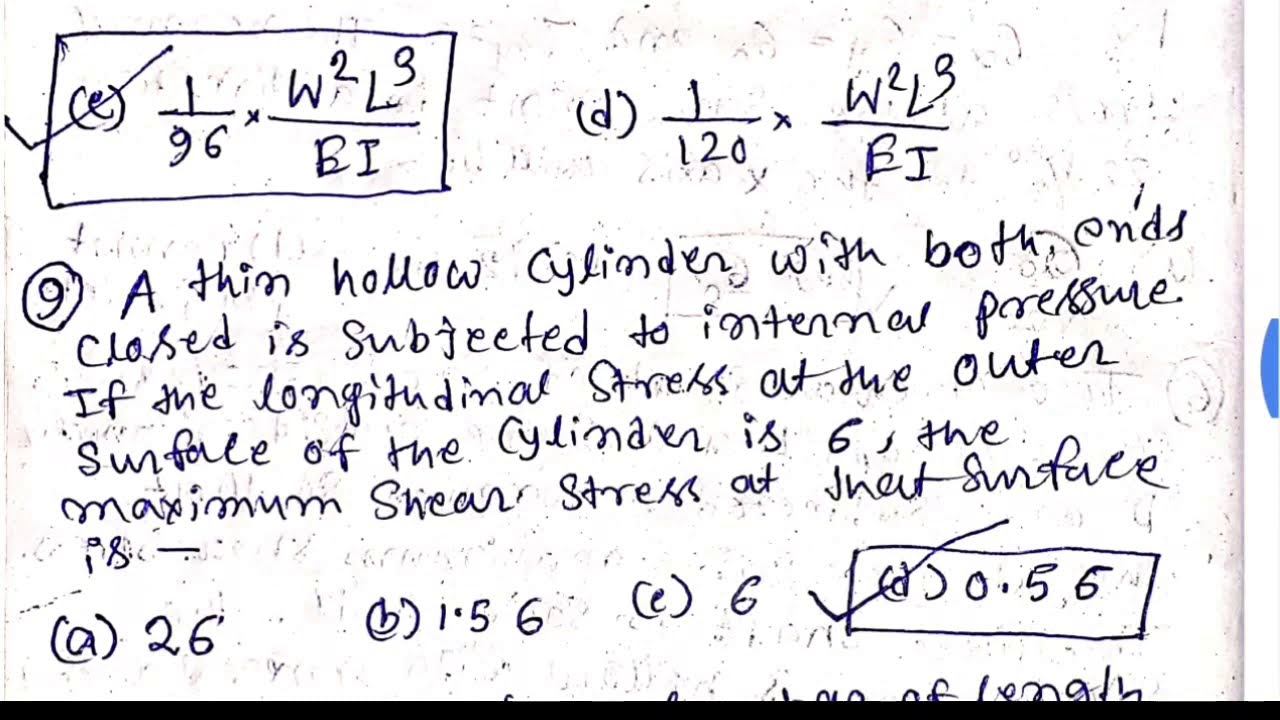 (c) 1/96 × W²L³/EI (d) 1/120 × W²L³/EI
⑨ A thin hollow cylinder with both ends
closed is subjected to internal pressure
If the longitudinal stress at the outer
surface of the cylinder is 6, the
maximum shear stress at that surface
is —
(a) 26 (b) 1.5 6 (c) 6 (d) 0.5 6
of length